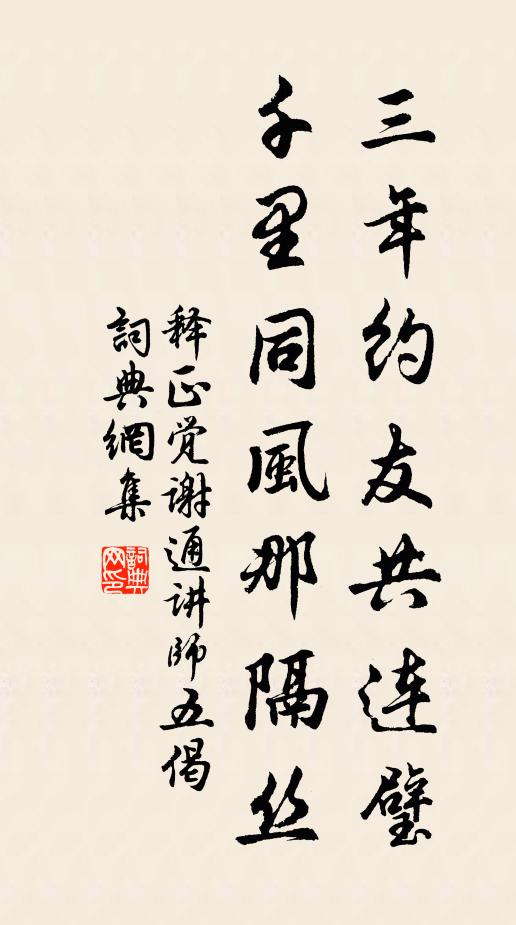 三年约友共連璧
千里同風那隔丝
释正觉謝通讲師五偈
詞典網集
詞典网印